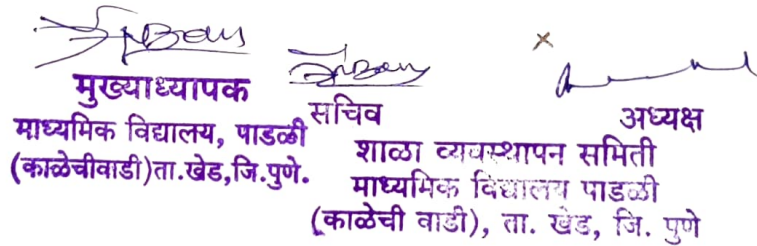 मुख्याध्यापक
माध्यमिक विद्यालय, पाडळी
(काळेचीवाडी)ता.खेड,जि.पुणे.
सचिव
अध्यक्ष
शाळा व्यवस्थापन समिती
माध्यमिक विद्यालय पाडळी
(काळेची वाडी), ता. खेड, जि. पुणे